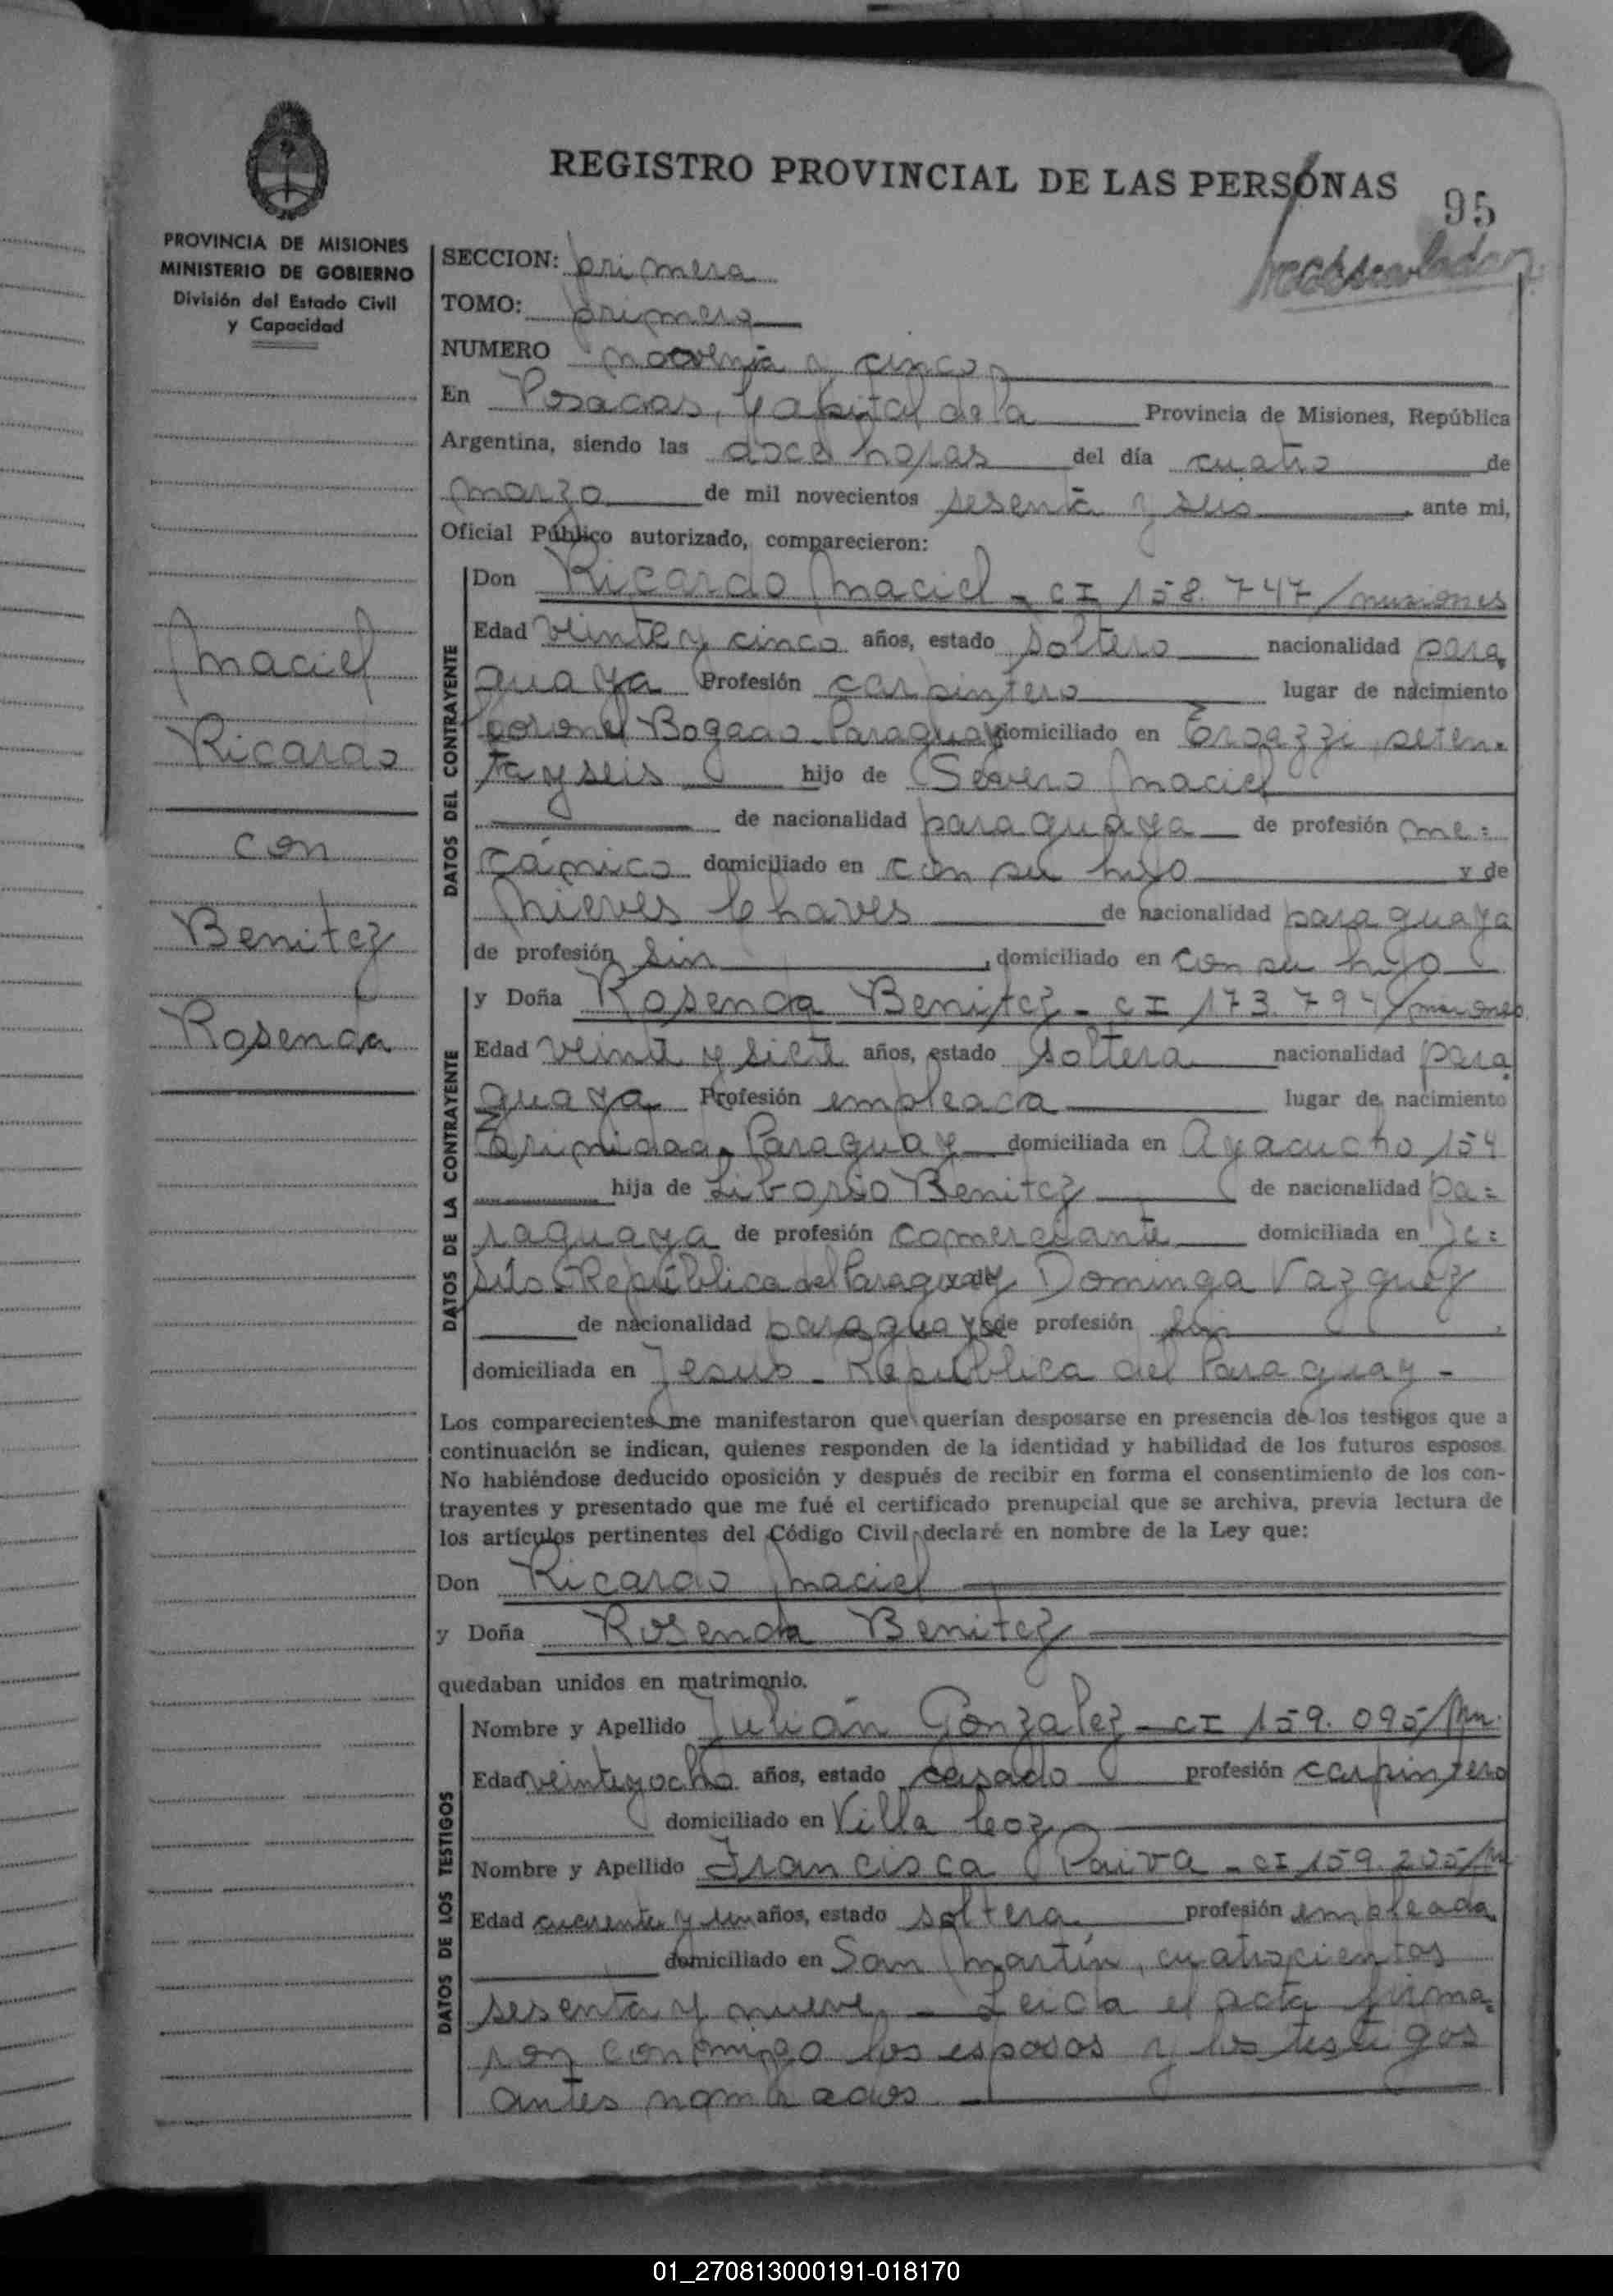 REGISTRO PROVINCIAL DE LAS PERSONAS
95
PROVINCIA DE MISIONES
MINISTERIO DE GOBIERNO
División del Estado Civil
y Capacidad
Maciel
Ricardo
con
Benitez
Rosenda
SECCION: primera
TOMO: primero
NUMERO noventa y cinco
En Posadas, Capital de la Provincia de Misiones, República
Argentina, siendo las doce horas del día cuatro de
marzo de mil novecientos sesenta y seis, ante mi,
Oficial Público autorizado, comparecieron:
DATOS DEL CONTRAYENTE
Don Ricardo Maciel - CI 158.747/misiones
Edad veinte y cinco años, estado soltero nacionalidad para
guaya Profesión carpintero lugar de nacimiento
Coronel Bogado - Paraguay domiciliado en seten-
ta y seis hijo de Severo Maciel
de nacionalidad paraguaya de profesión me=
cánico domiciliado en con su hijo y de
Nieves Chaves de nacionalidad paraguaya
de profesión sin, domiciliado en con su hijo
DATOS DE LA CONTRAYENTE
y Doña Rosenda Benitez - CI 173.794/misiones
Edad veinte y siete años, estado soltera nacionalidad para
guaya Profesión empleada lugar de nacimiento
Trinidad - Paraguay domiciliada en Ayacucho 154
hija de Liborio Benitez de nacionalidad pa=
raguaya de profesión comerciante domiciliada en Je=
sús - República del Paraguay y de Dominga Vazquez
de nacionalidad paraguaya de profesión sin,
domiciliada en Jesus - República del Paraguay -
Los comparecientes me manifestaron que querían desposarse en presencia de los testigos que a
continuación se indican, quienes responden de la identidad y habilidad de los futuros esposos.
No habiéndose deducido oposición y después de recibir en forma el consentimiento de los con-
trayentes y presentado que me fué el certificado prenupcial que se archiva, previa lectura de
los artículos pertinentes del Código Civil, declaré en nombre de la Ley que:
Don Ricardo Maciel
y Doña Rosenda Benitez
quedaban unidos en matrimonio.
DATOS DE LOS TESTIGOS
Nombre y Apellido Julián Gonzalez - CI 159.095/Mn.
Edad veinte y ocho años, estado casado profesión carpintero
domiciliado en Villa Coz
Nombre y Apellido Francisca Paiva - CI 159.205/M
Edad cuarenta y un años, estado soltera profesión empleada
domiciliado en San Martín, cuatrocientos
sesenta y nueve. - Leida el acta firma-
ron conmigo los esposos y los testigos
antes nombrados
01_270813000191-018170